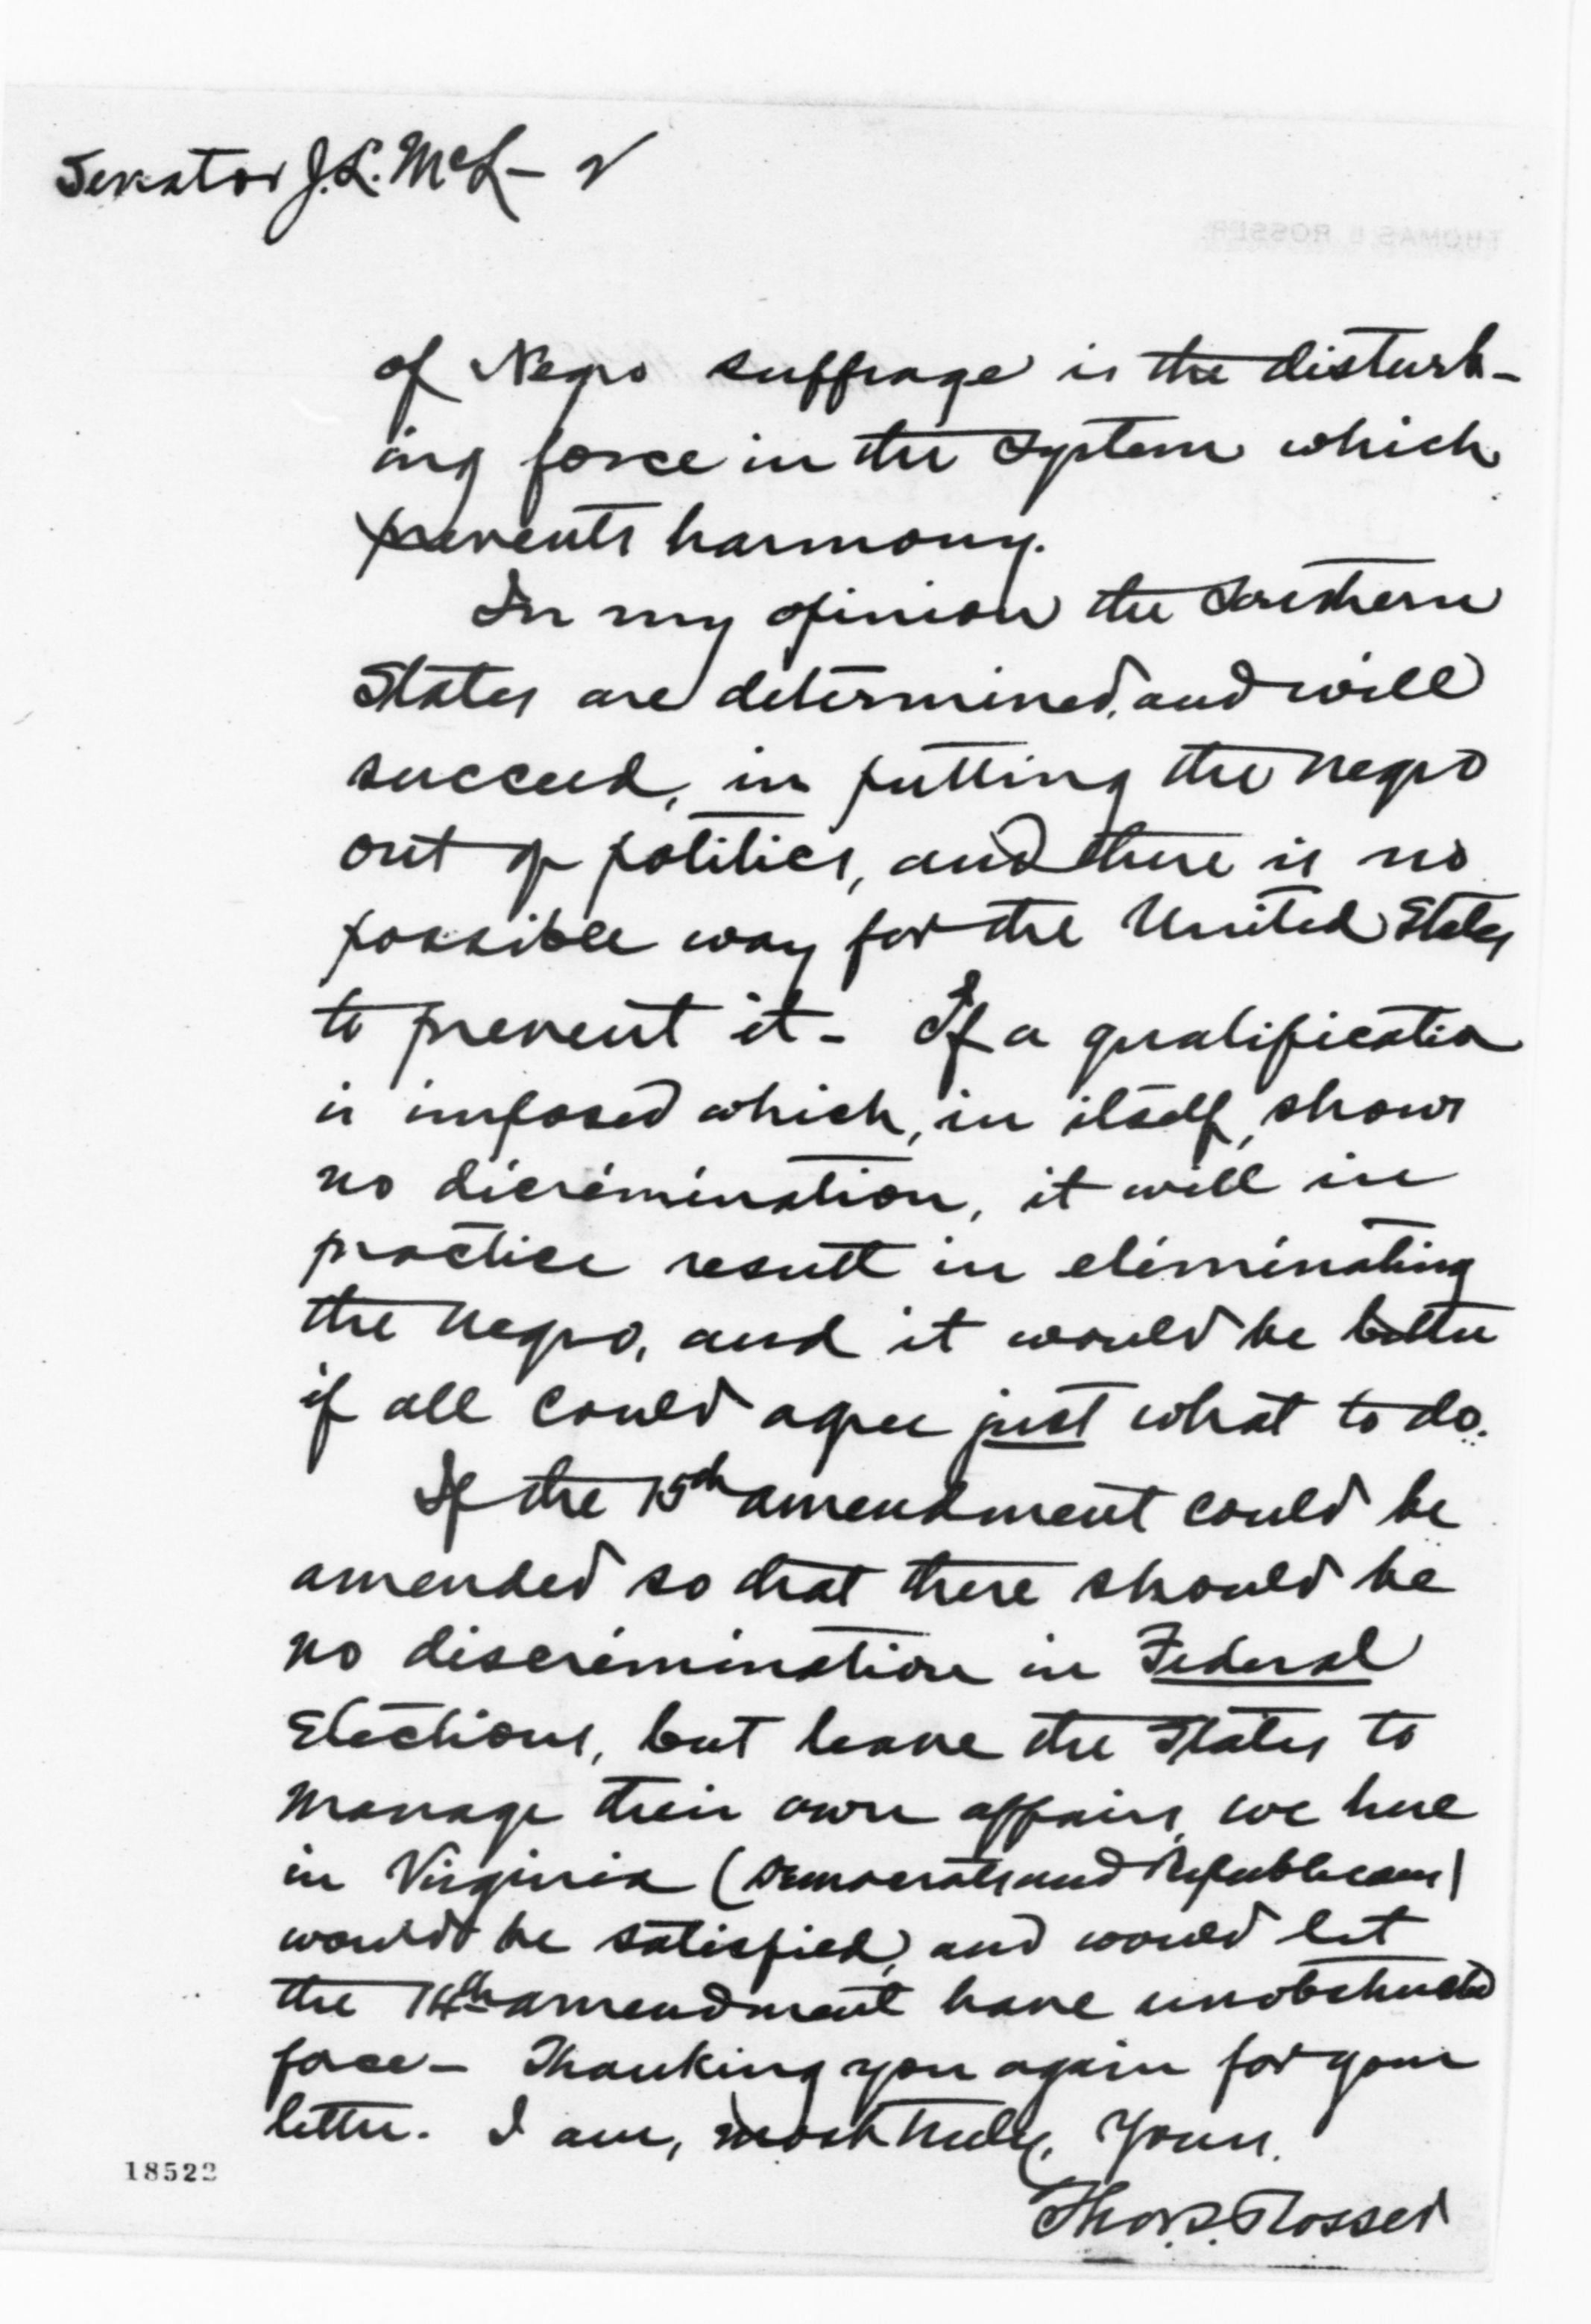 Senator J. L. McL— 2
THOMAS L ROSSER
of Negro suffrage is the disturb-
ing force in the system which
prevents harmony.
In my opinion the Southern
States are determined, and will
succeed, in putting the negro
out of politics, and there is no
possible way for the United States
to prevent it - If a qualification
is imposed which, in itself, shows
no dicrimination, it will in
practice result in eliminating
the negro, and it would be better
if all could agree just what to do.
If the 15th amendment could be
amended so that there should be
no discrimination in Federal
Elections, but leave the States to
manage their own affairs, we here
in Virginia (Democrats and Republicans)
would be satisfied, and would let
the 14th amendment have unobstructed
force - Thanking you again for your
letter. I am, most truly, Yours.
Tho. L. Rosser
18522